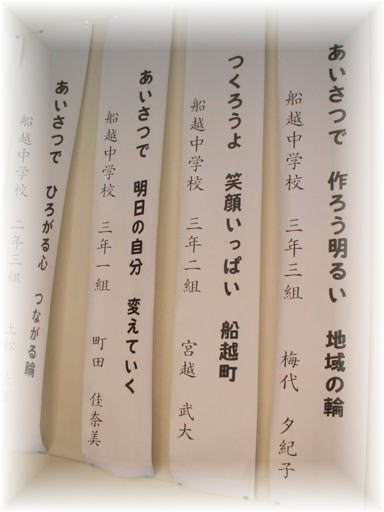 あいさつで 作ろう明るい 地域の輪
船越中学校 三年三組 梅代 夕紀子
つくろうよ 笑顔いっぱい 船越町
船越中学校 三年二組 宮越 武大
あいさつで 明日の自分 変えていく
船越中学校 三年一組 町田 佳奈美
あいさつで ひろがる心 つながる輪
船越中学校 二年三組